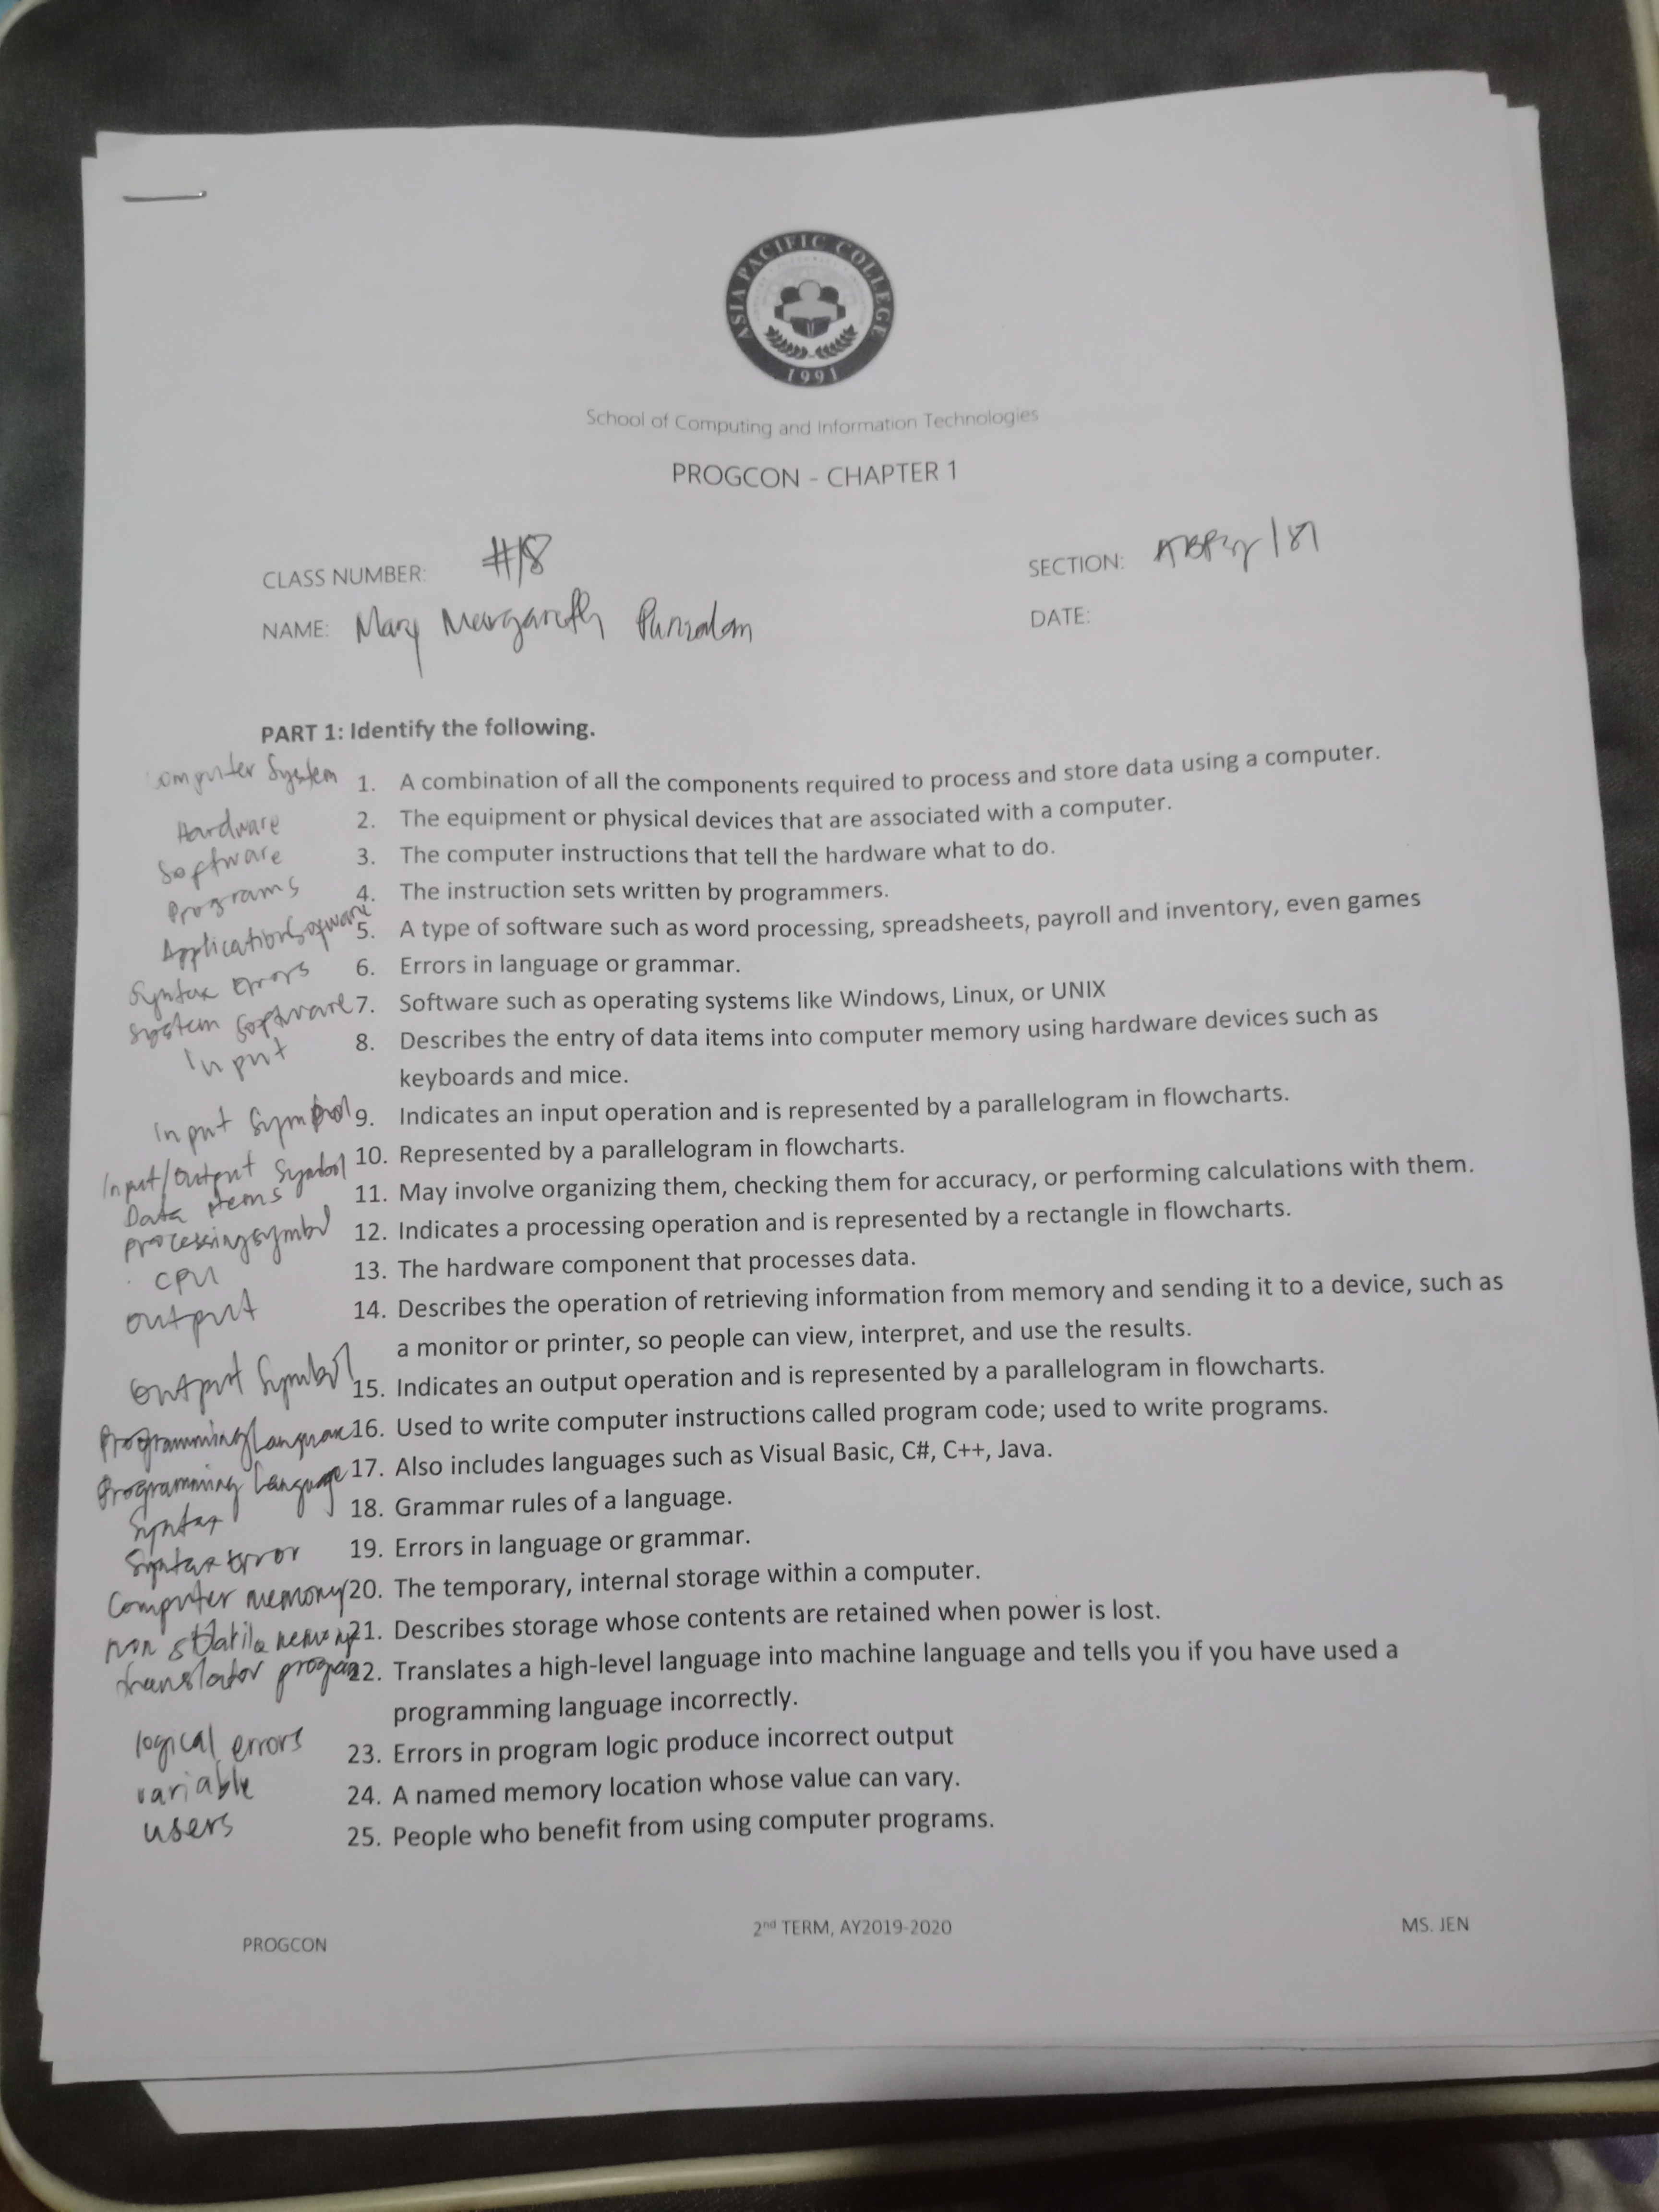 ASIA PACIFIC COLLEGE
1991
School of Computing and Information Technologies
PROGCON - CHAPTER 1
CLASS NUMBER: #18
SECTION:
NAME: Mary Margareth Punzalan
DATE:
PART 1: Identify the following.
Computer System 1. A combination of all the components required to process and store data using a computer.
Hardware 2. The equipment or physical devices that are associated with a computer.
Software 3. The computer instructions that tell the hardware what to do.
Programs 4. The instruction sets written by programmers.
Application Sofware 5. A type of software such as word processing, spreadsheets, payroll and inventory, even games
Syntax Errors 6. Errors in language or grammar.
System Software 7. Software such as operating systems like Windows, Linux, or UNIX
Input 8. Describes the entry of data items into computer memory using hardware devices such as
keyboards and mice.
Input Symbol 9. Indicates an input operation and is represented by a parallelogram in flowcharts.
Input/Output Symbol 10. Represented by a parallelogram in flowcharts.
Data items 11. May involve organizing them, checking them for accuracy, or performing calculations with them.
processing symbol 12. Indicates a processing operation and is represented by a rectangle in flowcharts.
CPU 13. The hardware component that processes data.
Output 14. Describes the operation of retrieving information from memory and sending it to a device, such as
a monitor or printer, so people can view, interpret, and use the results.
Output Symbol 15. Indicates an output operation and is represented by a parallelogram in flowcharts.
Programming 16. Used to write computer instructions called program code; used to write programs.
Programming Language 17. Also includes languages such as Visual Basic, C#, C++, Java.
Syntax 18. Grammar rules of a language.
Syntax Error 19. Errors in language or grammar.
Computer memory 20. The temporary, internal storage within a computer.
non 21. Describes storage whose contents are retained when power is lost.
translator 22. Translates a high-level language into machine language and tells you if you have used a
programming language incorrectly.
logical errors 23. Errors in program logic produce incorrect output
variable 24. A named memory location whose value can vary.
users 25. People who benefit from using computer programs.
PROGCON
2nd TERM, AY2019-2020
MS. JEN